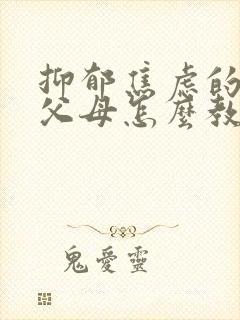 抑郁焦虑的
父母怎麼教
鬼愛靈